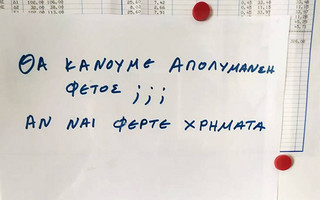 ΘΑ ΚΑΝΟΥΜΕ ΑΠΟΛΥΜΑΝΣΗ
ΦΕΤΟΣ ;;;
ΑΝ ΝΑΙ ΦΕΡΤΕ ΧΡΗΜΑΤΑ